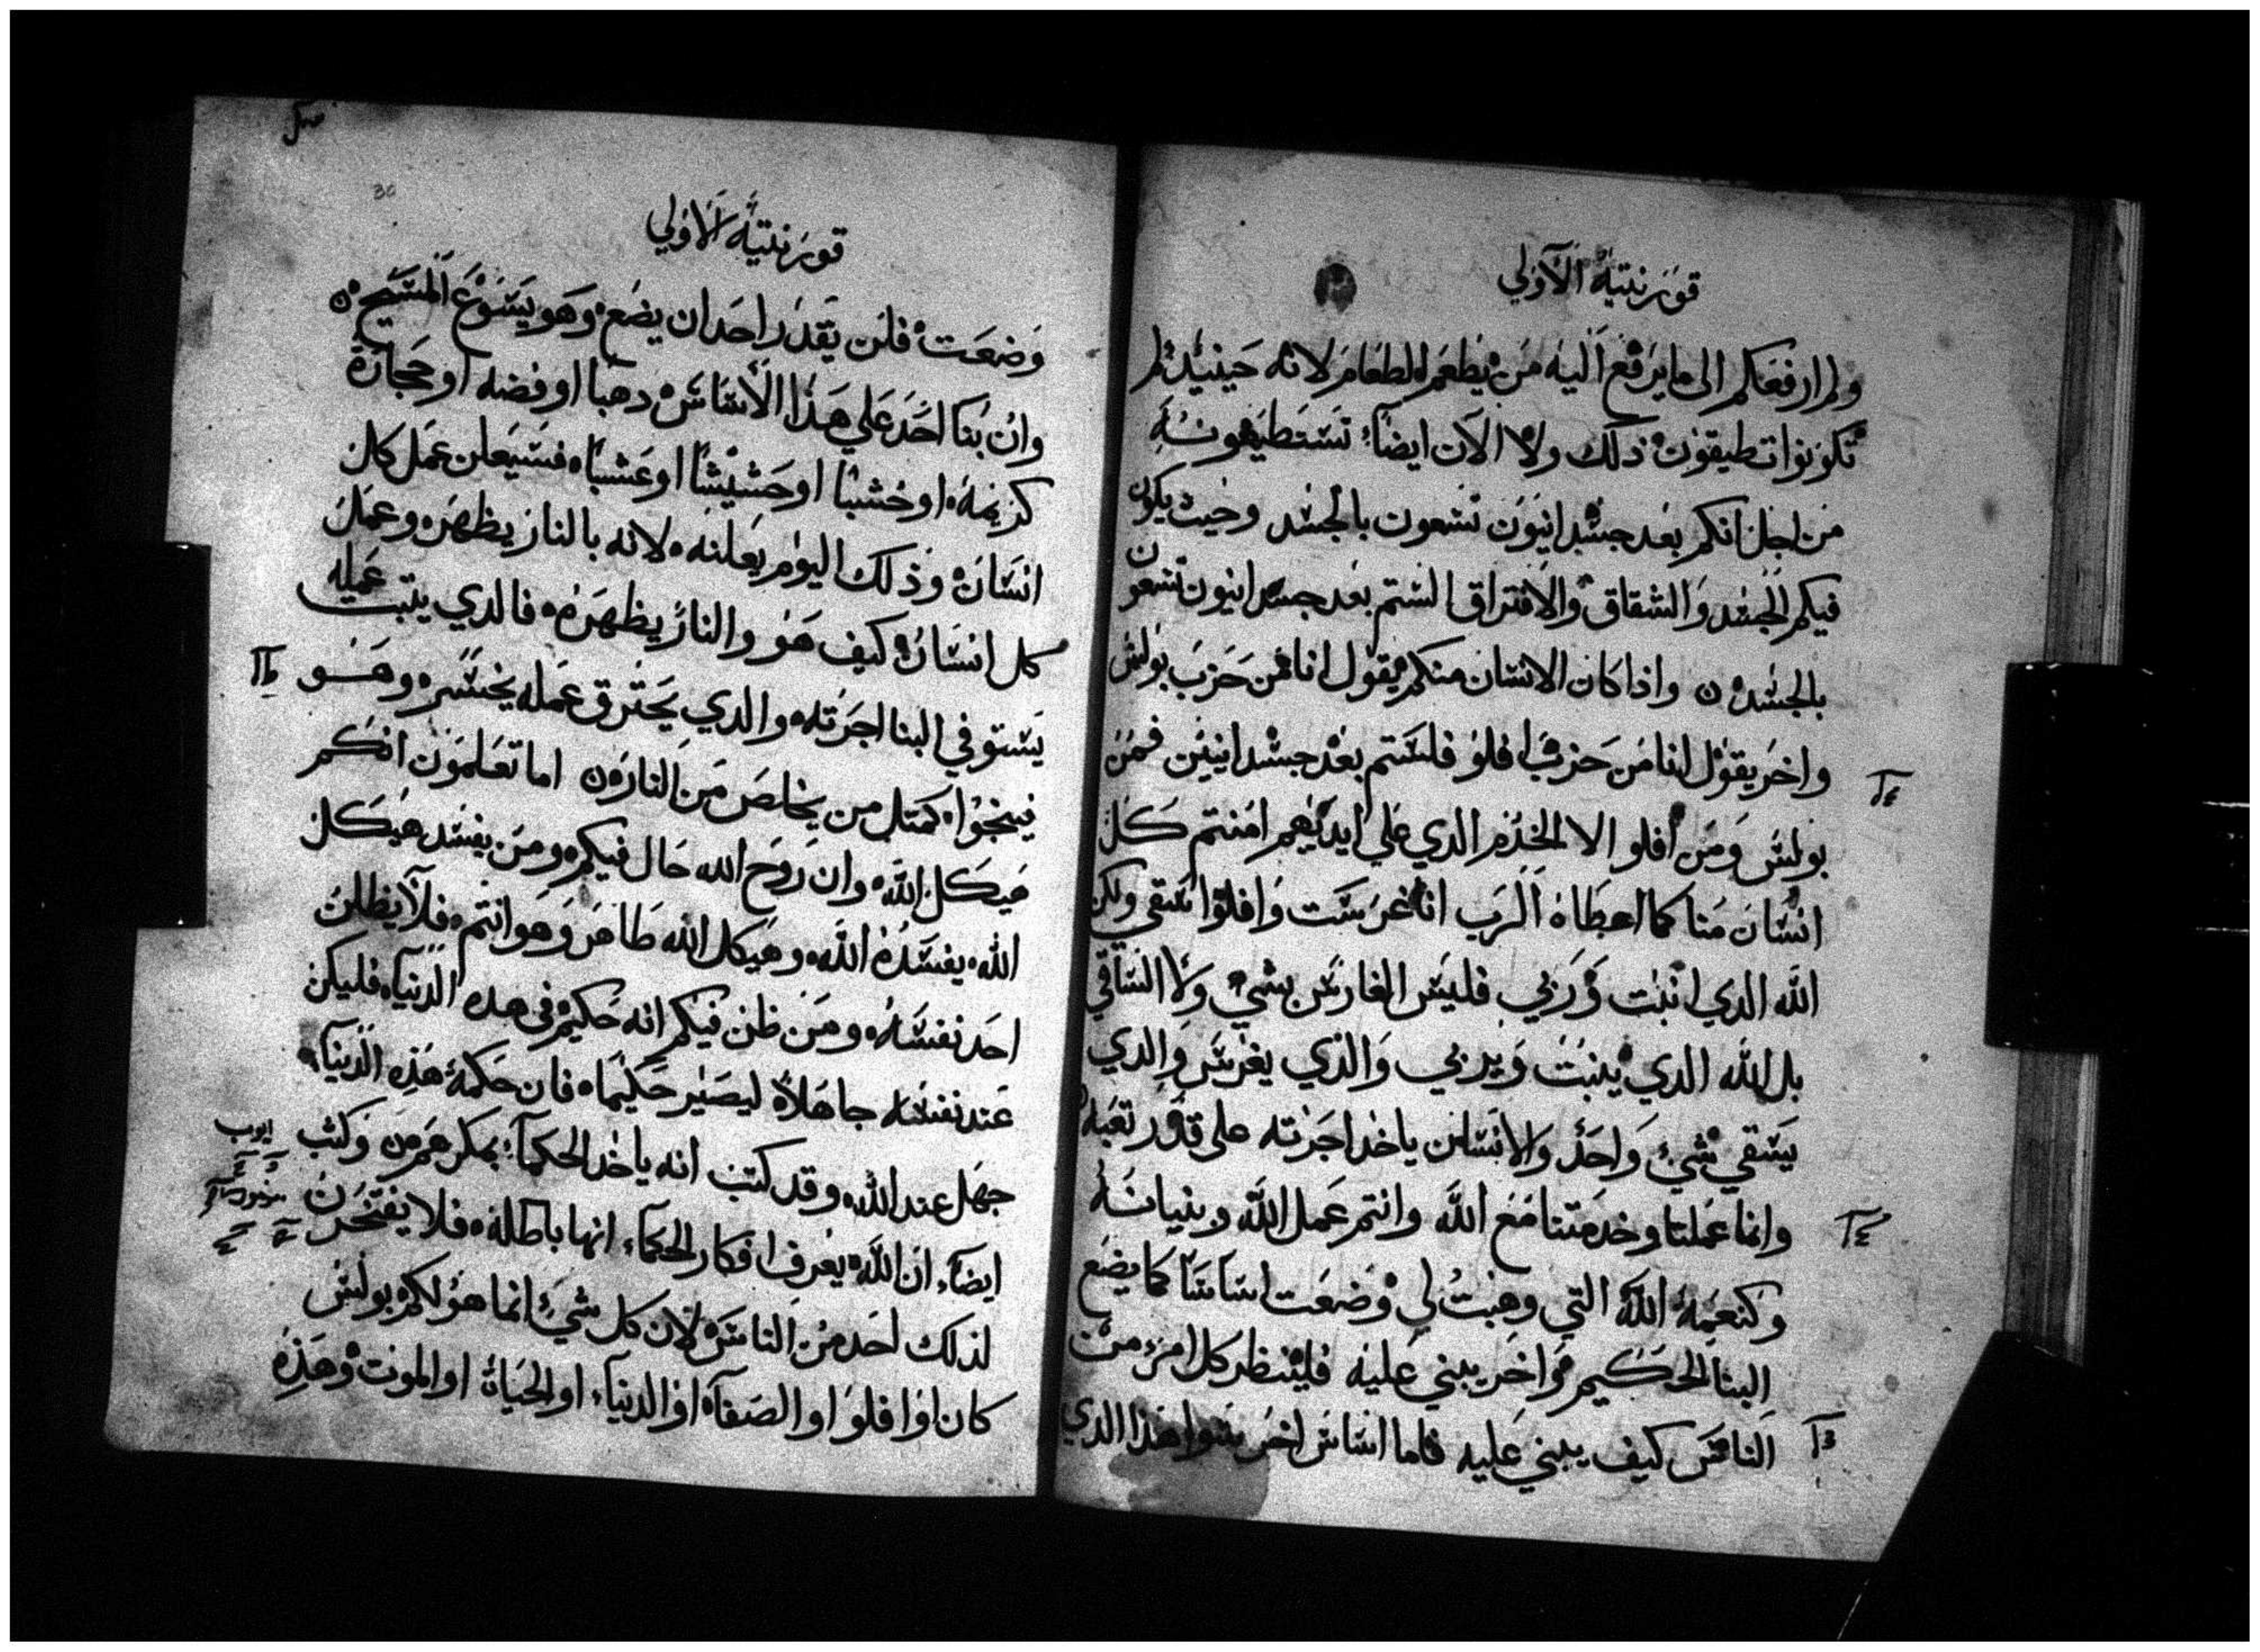 قورنتية الاولي
ولم ارفعكم الى ما يرفع اليه من يطعم الطعام لانه حينيذ لم
تكونوا تطيقون ذلك ولا الان ايضاً تستطيعونه
من اجل انكم بعد جسدانيون تسعون بالجسد وحيث يكون
فيكم الجسد والشقاق والافتراق الستم بعد جسدانيون تسعون
بالجسد واذا كان الانسان منكم يقول انا من حزب بولس
واخر يقول انا من حزب افلو فلستم بعد جسدانيين فمن
بولس ومن افلو الا الخدم الدي علي ايديهم امنتم كل
انسان منا كما اعطاه الرب انا غرست وافلوا سقي ولكن
الله الدي انبت وربي فليس الغارس بشي ولا الساقي
بل الله الدي ينبت ويربي والذي يغرس والدي
يسقي شيء واحد والانسان ياخد اجرته على قدر تعبه
وانما عملنا وخدمتنا مع الله وانتم عمل الله وبنيانه
وكنعمة الله التي وهبت لي وضعت اساسا كما يضع
البنا الحكيم واخر يبني عليه فلينظر كل امرء من
الناس كيف يبني عليه فاما اساس اخر سوا هذا الدي
30
قورنتية الاولي
وضعت فلن يقدر احد ان يضع وهو يسوع المسيح
وان بنا احد علي هذا الاساس دهبا او فضه او حجارة
كريمة او خشبا او حشيشا او عشبا فسيعلن عمل كل
انسان وذلك اليوم يعلنه لانه بالنار يظهر وعمل
كل انسان كيف هو والنار يظهره فالدي يتبت عمله
يستوفي البنا اجرته والدي يحترق عمله يخسر وهو
فينجوا كمتل من يخلص من النار اما تعلمون انكم
هيكل الله وان روح الله حال فيكم ومن يفسد هيكل
الله يفسده الله وهيكل الله طاهر وهو انتم فلا يظلن
احد نفسه ومن ظن فيكم انه حكيم في هده الدنيا فليكن
عند نفسه جاهلا ليصير حكيما فان حكمة هذه الدنيا
جهل عند الله وقد كتب انه ياخد الحكمآ بمكرهم وكتب
ايوب
ايضا ان الله يعرف افكار الحكمآ انها باطلة فلا يفتخرن
لذلك احد من الناس لان كل شيء انما هو لكم بولس
كان او افلو او الصفا او الدنيا او الحياة او الموت وهذه